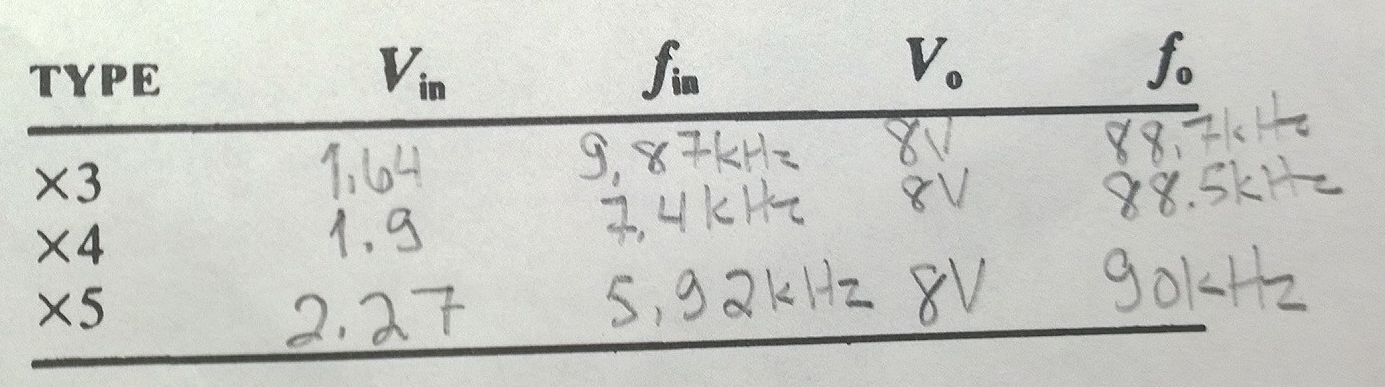 TYPE Vin fin Vo fo
×3 1.64 9,87kHz 8V 88,7kHz
×4 1.9 7,4kHz 8V 88.5kHz
×5 2.27 5,92kHz 8V 90kHz